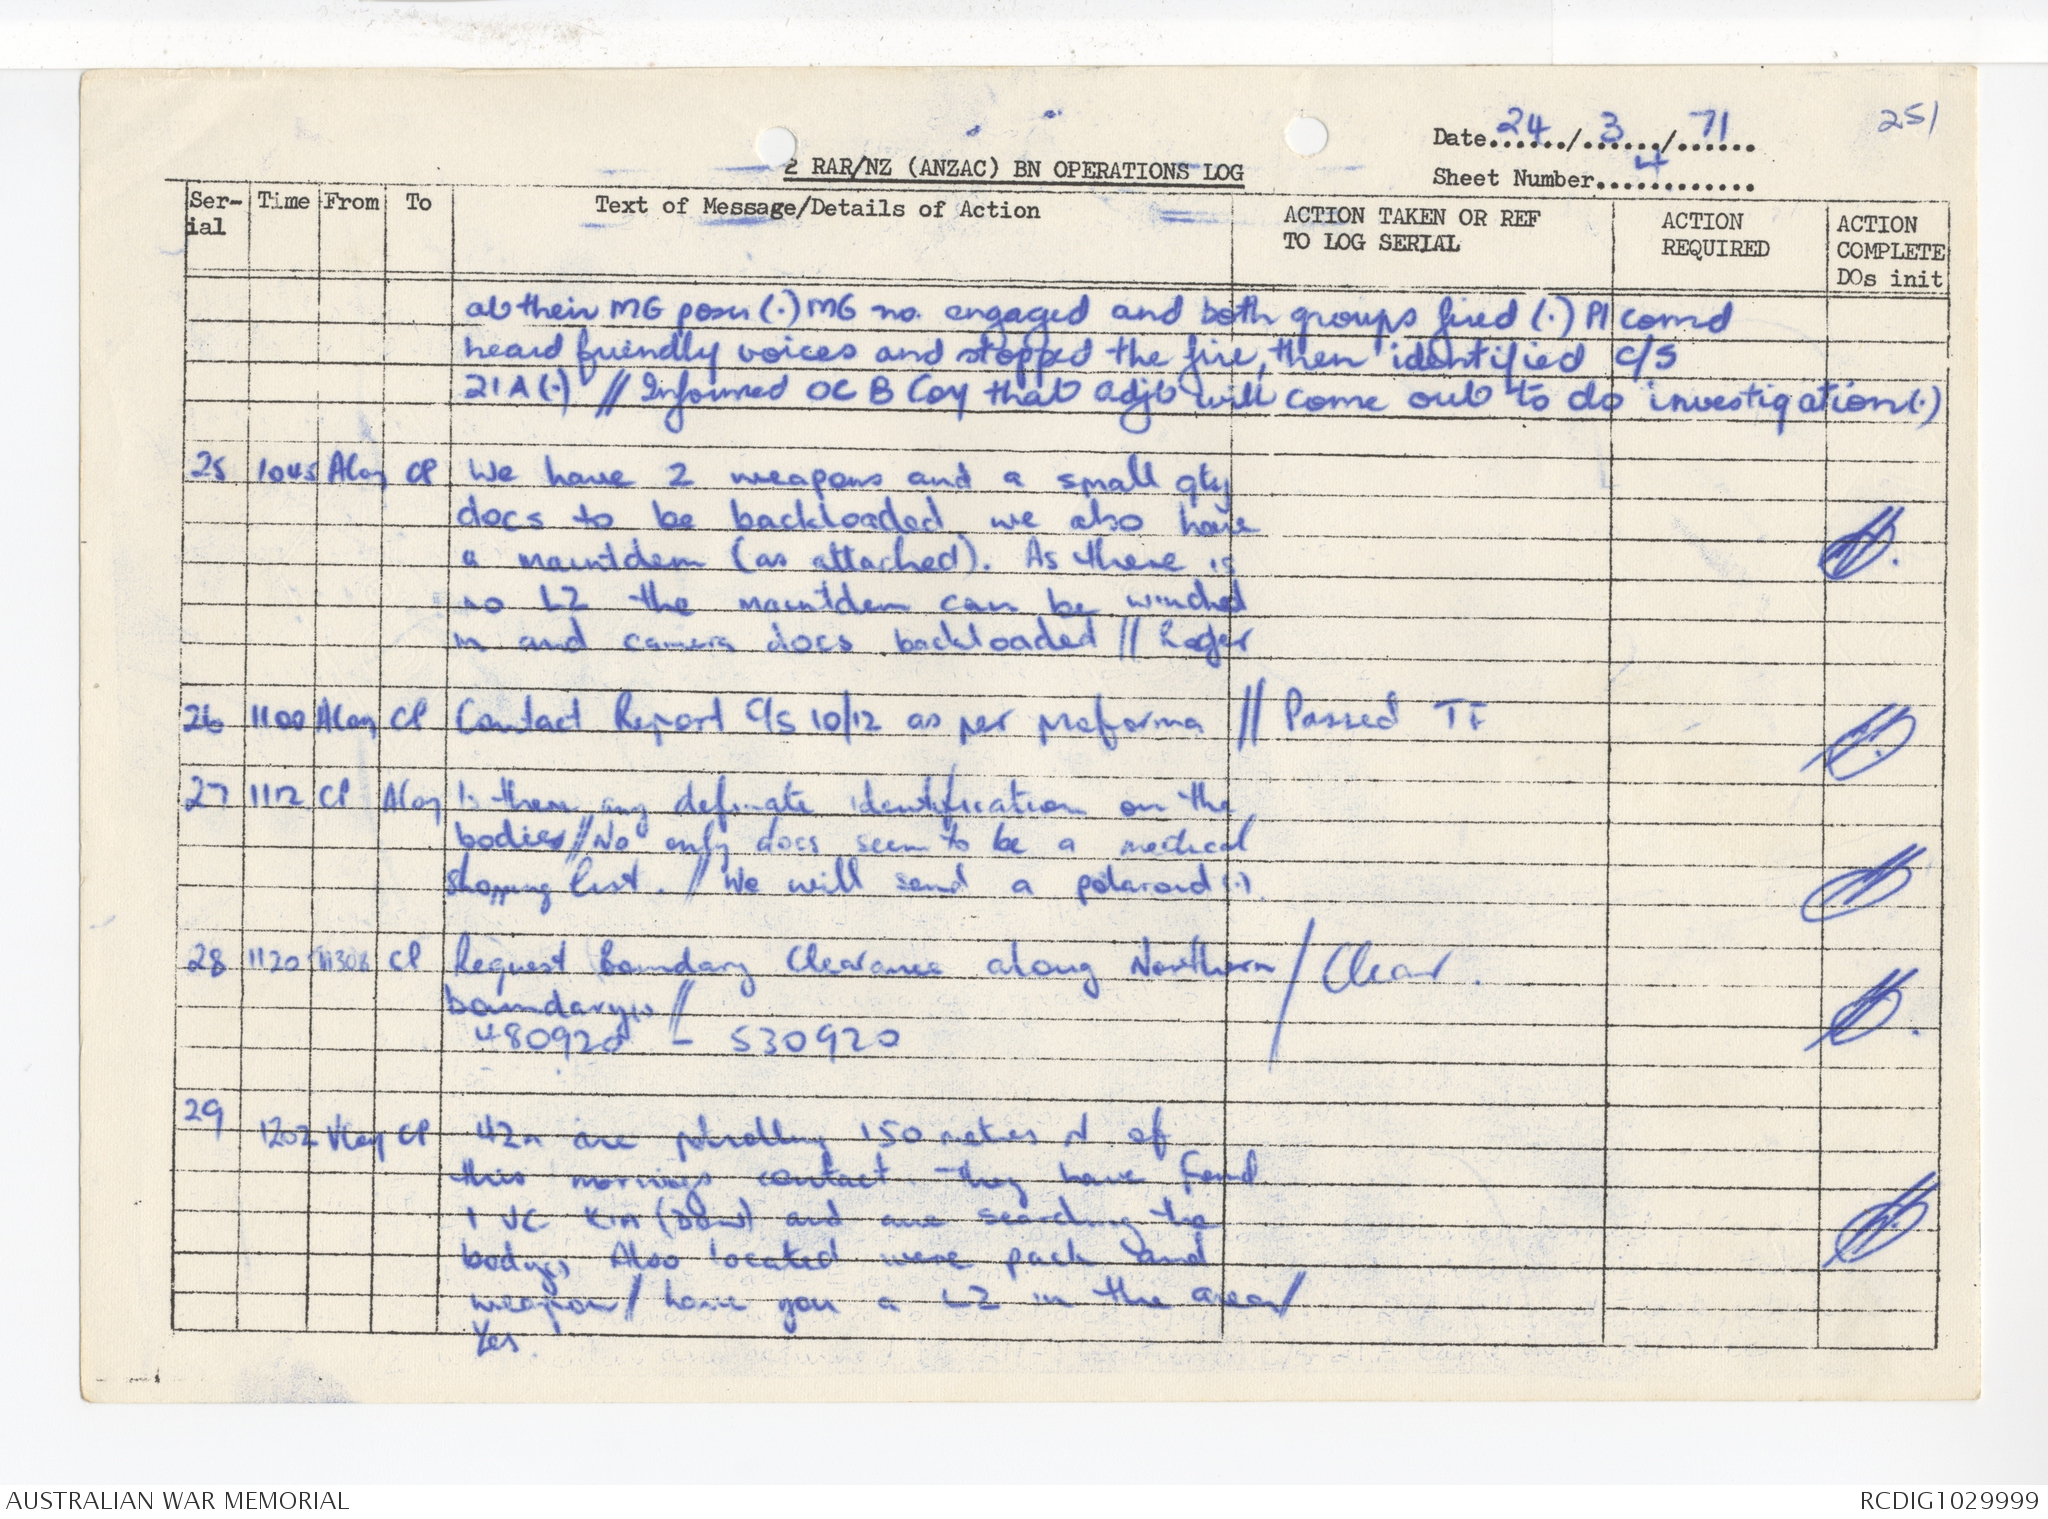 251
Date 24 / 3 / 71
2 RAR/NZ (ANZAC) BN OPERATIONS LOG
Sheet Number 4
Ser-ial Time From To Text of Message/Details of Action ACTION TAKEN OR REF TO LOG SERIAL ACTION REQUIRED ACTION COMPLETE DOs init
at their MG posn (.) MG no. engaged and both groups fired (.) Pl comd
heard friendly voices and stopped the fire, then identified c/s
21A (.) // Informed OC B Coy that adjt will come out to do investigation (.)
25 1045 A Coy CP We have 2 weapons and a small qty
docs to be backloaded we also have
a maintdem (as attached). As there is
no LZ the maintdem can be winched
in and camera docs backloaded // Roger
26 1100 A Coy CP Contact Report C/S 10/12 as per preforma // Passed TF
27 1112 CP A Coy Is there any definate identification on the
bodies // No only docs seem to be a medical
shopping list. // We will send a polaroid (.)
28 1120 CP Request Boundary Clearance along Northern / Clear.
boundary (.) //
480920 - 530920
29 1202 V Coy CP 42A are patrolling 150 metres N of
this mornings contact. They have found
1 VC KIA (BC) and are searching the
body. Also located were pack and
weapon // have you a LZ in the area //
Yes.
AUSTRALIAN WAR MEMORIAL
RCDIG1029999